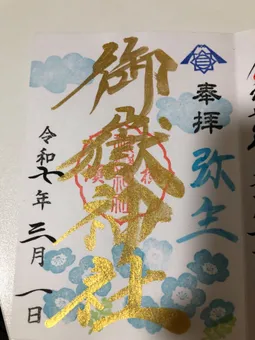 奉拝 弥生
御嶽神社
令和七年 三月 一日